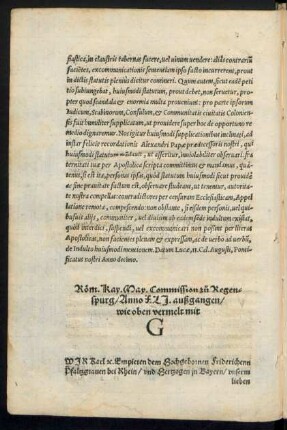 siastica, in claustris tabernas facere, vel uinum uendere: alias contrariū
facietes, excommunicationis sententiam ipso facto incurrerent, prout
in dictis statutis plenius dicitur contineri. Quum autem, sicut eadē peti
tio subiungebat, huiusmodi statutum, prout debet, non seruatur, pro-
pter quod scandala & enormia multa proueniunt: pro parte ipsorum
Iudicum, Scabinorum, Consulum, & Communitatis ciuitatis Colonien-
sis fuit humiliter supplicatum, ut prouidere super hoc de opportuno re
medio dignaremur. Nos igitur huiusmodi supplicationibus inclinati, ad
instar felicis recordationis Alexandri Papæ prædecessoris nostri, qui
huiusmodi statutum, ut asseritur, inuiolabiliter obseruari fa
ternitati tuæ per Apostolica scripta committimus & mandamus, qua-
tenus, si est ita, personas ipsas, quòd statutum huiusmodi sicut prouidè
ac sine prauitate factum est, obseruare studeant, ut tenentur, autorita-
te nostra compellas: contradictores per censuram Ecclesiasticam, Appel
latione remota, compescendo: non obstante, si eisdem personis, uel qui-
busuis alijs, communiter, uel diuisim ab eadem sede indultum existat,
quòd interdici, suspendi, uel excommunicari non possint per literas
Apostolicas, non facientes plenam & expressam, ac de uerbo ad uerbū,
de Indulto huiusmodi mentionem. Datum Lucæ, 11. Cal. Augusti, Pon-
tificatus nostri Anno decimo.
Röm. Kay. May. Commission zů Regen-
spurg/Anno XLI. außgangen/
wie oben vermelt mit
G
WIR Karl ꝛc. Empieten dem Hochgebornen Friderichenn
Pfaltzgrauen bei Rhein/ vnd Hertzogen in Bayern/ vnserm
lieben